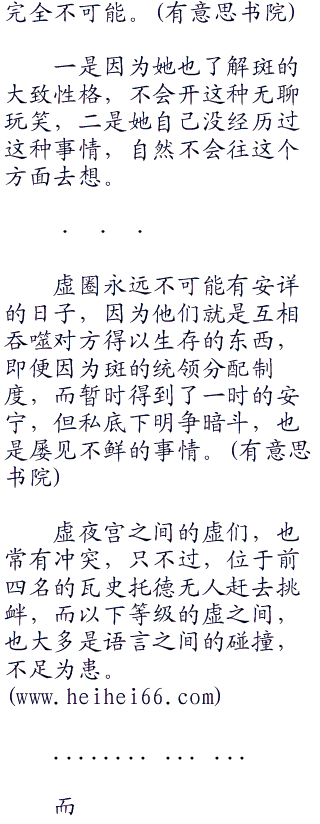 完全不可能。(有意思书院)
一是因为她也了解斑的
大致性格，不会开这种无聊
玩笑，二是她自己没经历过
这种事情，自然不会往这个
方面去想。
. . .
虚圈永远不可能有安详
的日子，因为他们就是互相
吞噬对方得以生存的东西，
即便因为斑的统领分配制
度，而暂时得到了一时的安
宁，但私底下明争暗斗，也
是屡见不鲜的事情。(有意思
书院)
虚夜宫之间的虚们，也
常有冲突，只不过，位于前
四名的瓦史托德无人赶去挑
衅，而以下等级的虚之间，
也大多是语言之间的碰撞，
不足为患。
(www.heihei66.com)
........ ... ...
而